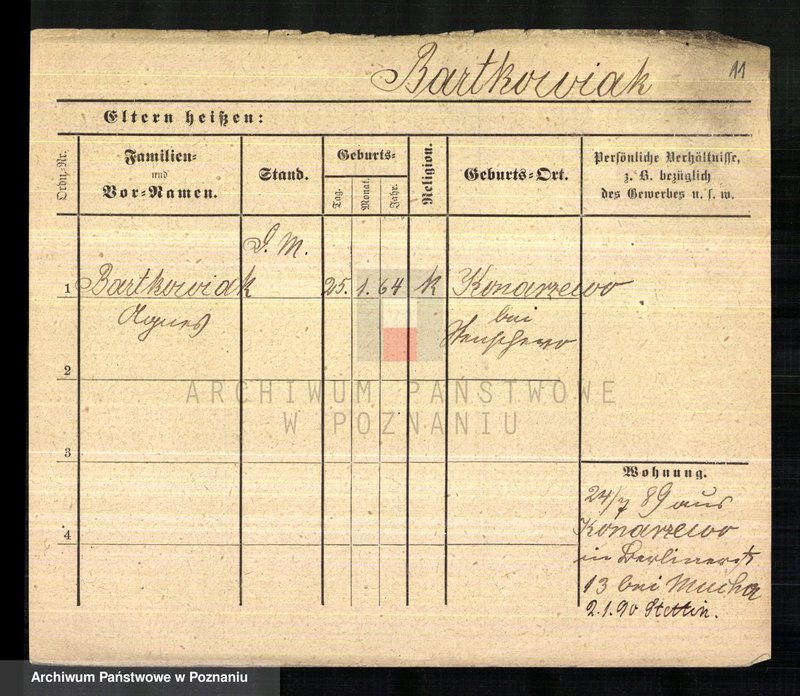 Bartkowiak 11
Eltern heißen:
Ordn.-Nr.
Familien-
und
Vor-Namen.
Stand.
Geburts-
Tag.
Monat.
Jahr.
Religion.
Geburts-Ort.
Persönliche Verhältnisse,
z. B. bezüglich
des Gewerbes u. s. w.
D. M.
1 Bartkowiak 25. 1. 64 k Konarzewo
Agnes bei
2
ARCHIWUM PAŃSTWOWE
W POZNANIU
3
4
Wohnung.
24/7 89 aus
Konarzewo
in Berlinerst
13 bei Mucha
2.1.90 Stettin.
Archiwum Państwowe w Poznaniu